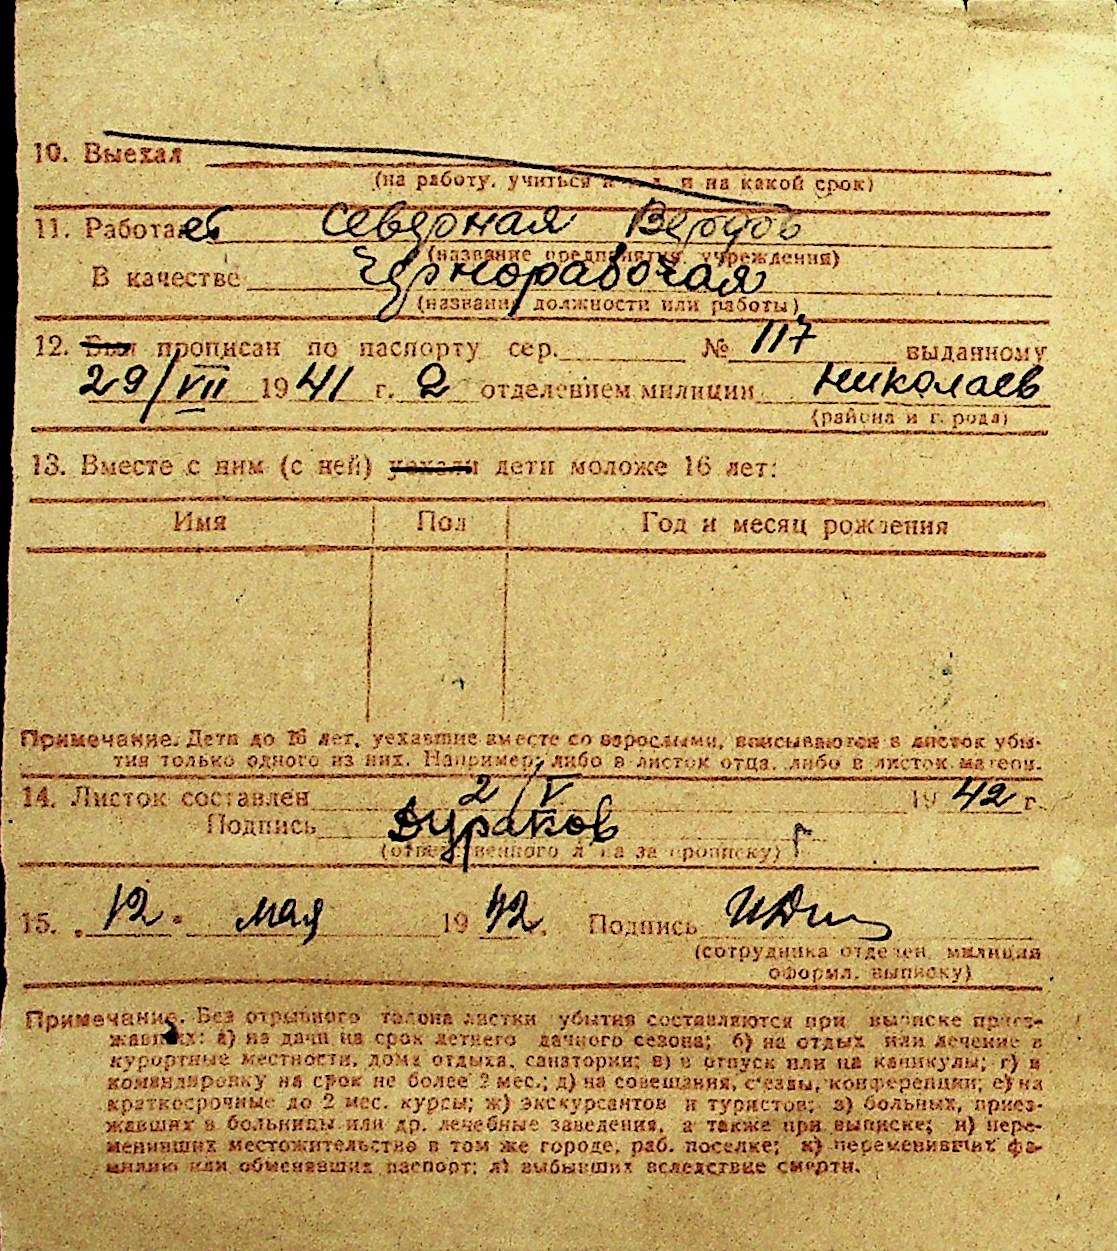 10. Выехал
(на работу, учиться и т. д. и на какой срок)
11. Работает Северная Верфь
(название предприятия, учреждения)
В качестве Чернорабочая
(название должности или работы)
12. Был прописан по паспорту сер. № 117 выданному
29/VII 1941 г. 2 отделением милиции Николаев
(района и города)
13. Вместе с ним (с ней) уехали дети моложе 16 лет:
Имя Пол Год и месяц рождения
Примечание. Дети до 16 лет, уехавшие вместе со взрослыми, вписываются в листок убы-
тия только одного из них. Например: либо в листок отца, либо в листок матери.
14. Листок составлен 2/V 1942 г.
Подпись Дураков
(ответственного л на за прописку)
15. „12" мая 1942. Подпись
(сотрудника отделен. милиции
оформл. выписку)
Примечание. Без отрывного талона листки убытия составляются при выписке приез-
жавших: а) на дачи на срок летнего дачного сезона; б) на отдых или лечение в
курортные местности, дома отдыха, санатории; в) в отпуск или на каникулы; г) в
командировку на срок не более 2 мес.; д) на совещания, с'езды, конференции; е) на
краткосрочные до 2 мес. курсы; ж) экскурсантов и туристов; з) больных, приез-
жавших в больницы или др. лечебные заведения, а также при выписке; и) пере-
менивших местожительство в том же городе, раб. поселке; к) переменивших фа-
милию или обменявших паспорт; л) выбывших вследствие смерти.